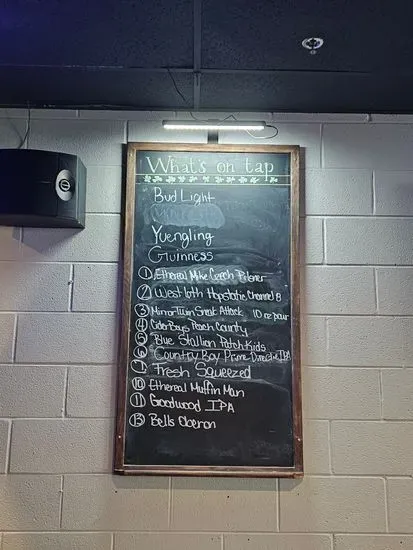 What's on tap
Bud Light
Yuengling
Guinness
① Ethereal Mike Czech Pilsner
② West 6th Hopstatic Channel 8
③ Mirror Twin Sneak Attack 10 oz pour
④ Ciderboys Peach County
⑤ Blue Stallion Patch Kids
⑥ Country Boy Prime Directive IPA
⑦ Fresh Squeezed
⑩ Ethereal Muffin Man
⑪ Goodwood IPA
⑬ Bells Oberon